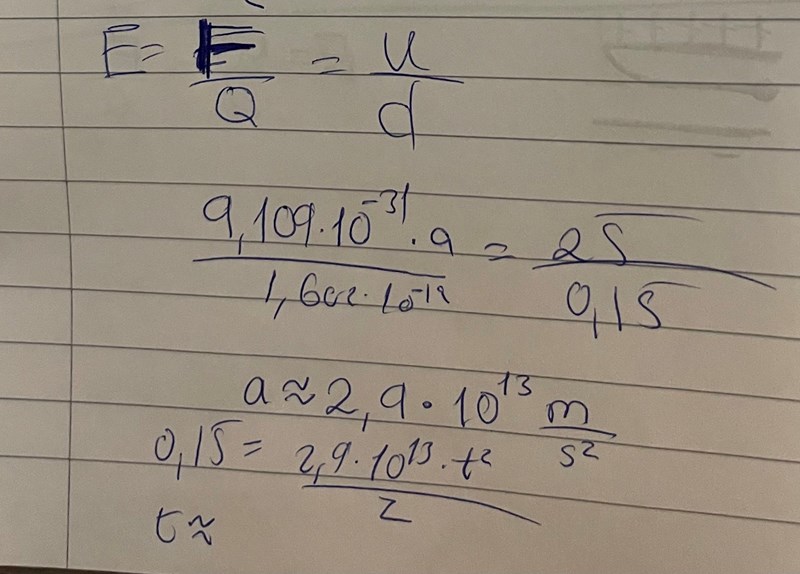 E = F/Q = U/d
9,109·10⁻³¹·a / 1,602·10⁻¹⁹ = 25 / 0,15
a ≈ 2,9·10¹³ m/s²
0,15 = 2,9·10¹³·t² / 2
t ≈